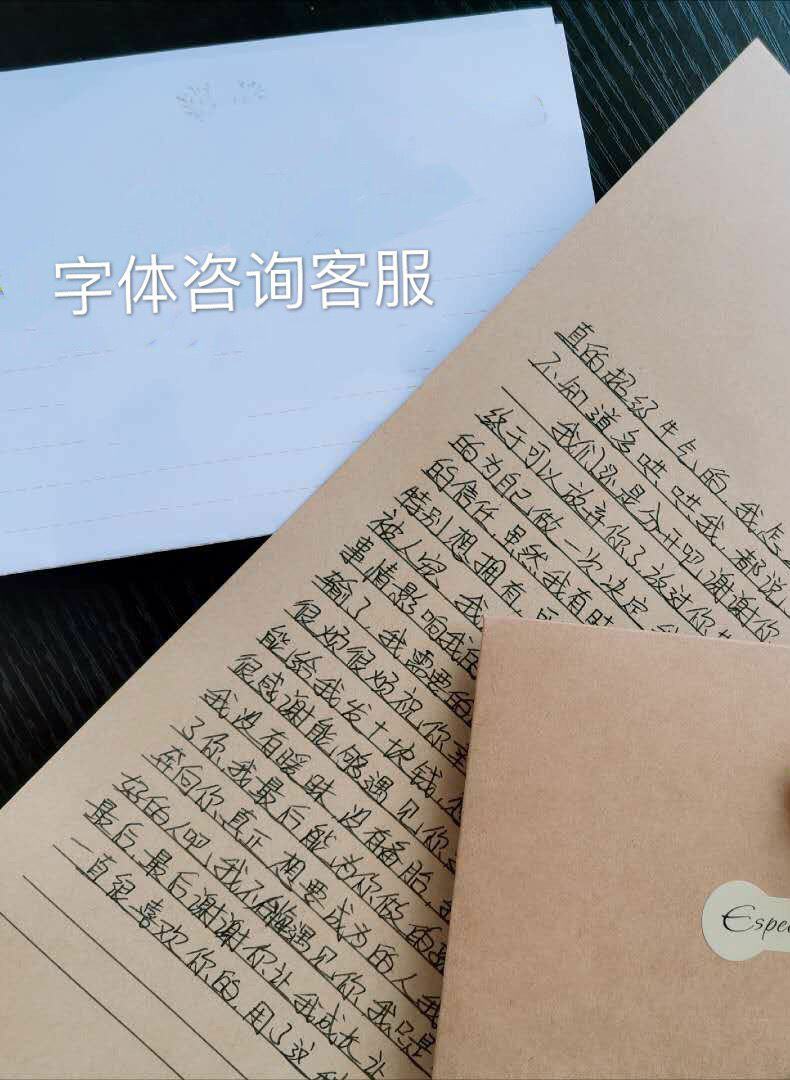 字体咨询客服
真的超级生气的,我怎
不知道多哄哄我,都说
我们还是分开吧,谢谢你
终于可以放弃你了,放过你
的为自己做一次决定,我
的信任,虽然我有时
特别想拥有,
被人宠,我
事情影响我的
输了,我需要的
很烦很烦,祝你
能给我发十块钱,
很感谢能够遇见你
我没有暧昧,没有备胎,
了你,我最后能为你做的
奔向你真正想要成为的人,我
好的人吧,我不后悔遇见你,我只是
最后,最后谢谢你让我成长,让
一直很喜欢你的,用了这
Espe